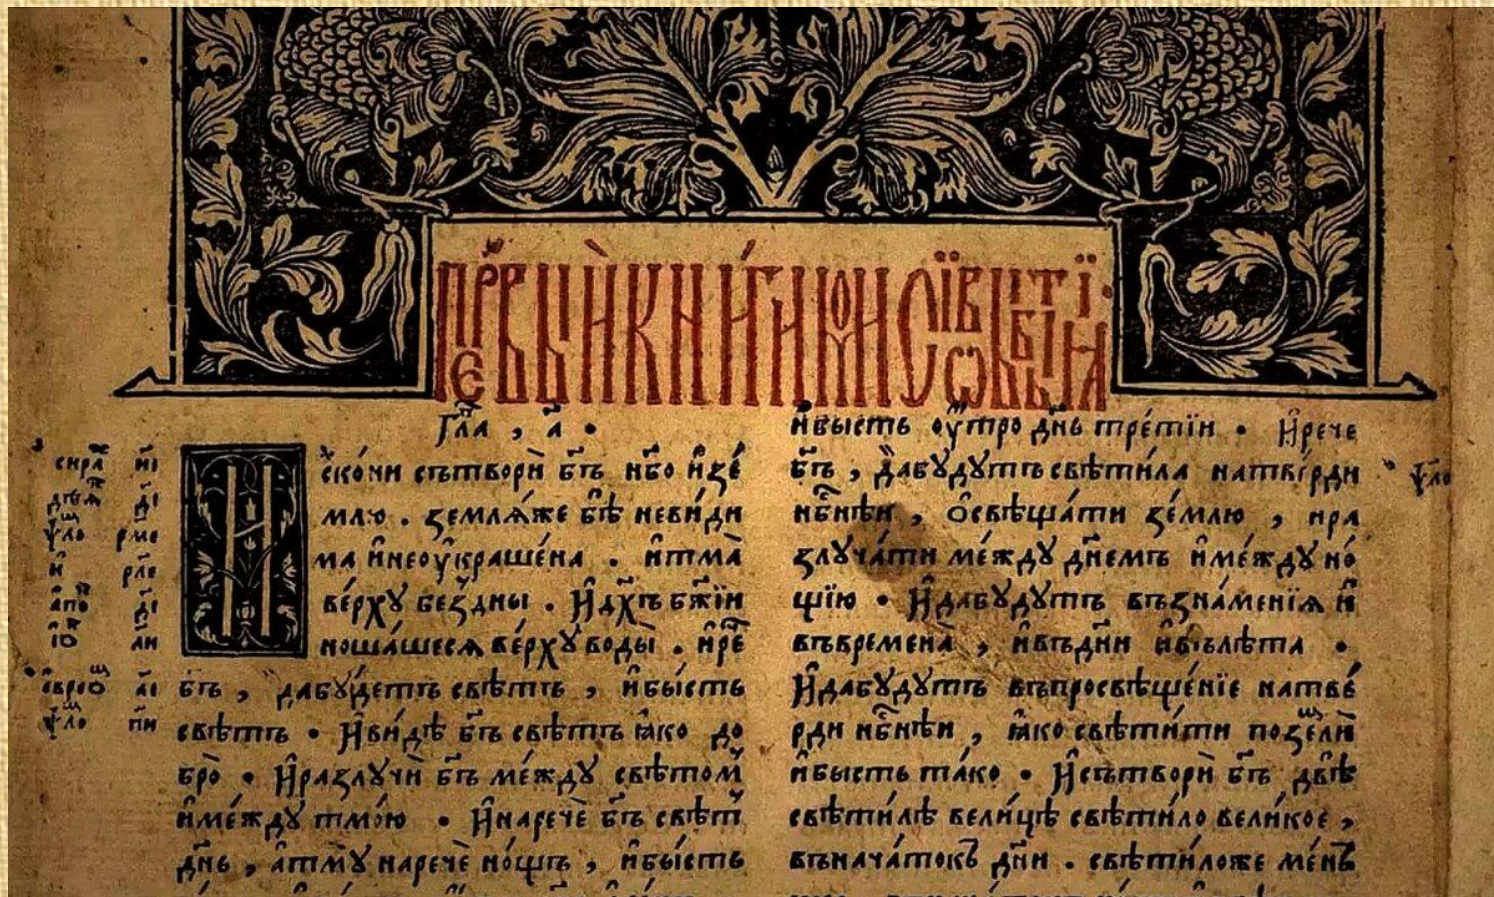 Прⷡ҇еъвыѝ книги моисїовы бытїѧ
Гла҃ , а҃ ·
Искони сътворѝ бг҃ъ нб҃о и҆зе́
млю . землѧ́же бѣ̀ неви́ди
ма и҆неоу҆краше́на . и҆тма̀
ве́рху бе́здны . И҆дх҃ъ бж҃їи
ноша́шесѧ ве́рхꙋ воды̀ . и҆ре҃
бг҃ъ , дабꙋ́детъ свѣ́тъ , и҆бы́сть
свѣ́тъ · И҆ви́дѣ бг҃ъ свѣ́тъ ꙗ҆́ко до
бро̀ · И҆разлꙋчѝ бг҃ъ ме́ждꙋ свѣ́томъ
и҆ме́ждꙋ тмо́ю · И҆наречѐ бг҃ъ свѣ́тъ
дн҃ь , а҆тмꙋ̀ наречѐ но́щъ , и҆бы́сть
и҆бысть оу҆́тро дн҃ь тре́тїи · И҆рече
бг҃ъ , дабꙋ́дꙋтъ свѣти́ла натве́рди
нбⷭ҇нѣи , ѻ҆свѣща́ти зе́млю , ира
злꙋча́ти ме́ждꙋ дн҃емъ и҆ме́ждꙋ но́
щїю · И҆дабꙋ́дꙋтъ възна́менїѧ и҆
въвремена̀ , и҆въдни и҆въ лѣта ·
И҆дабꙋ́дꙋтъ въпросвѣще́нїе натве́
рди нбⷭ҇нѣи , ꙗ҆́ко свѣти́ти поземлѝ
и҆бысть та́ко · И҆сътворѝ бг҃ъ двѣ̀
свѣти́лѣ вели́цѣ свѣти́ло вели́кое ,
въннача́токъ дн҃и . свѣти́ложе ме́нь